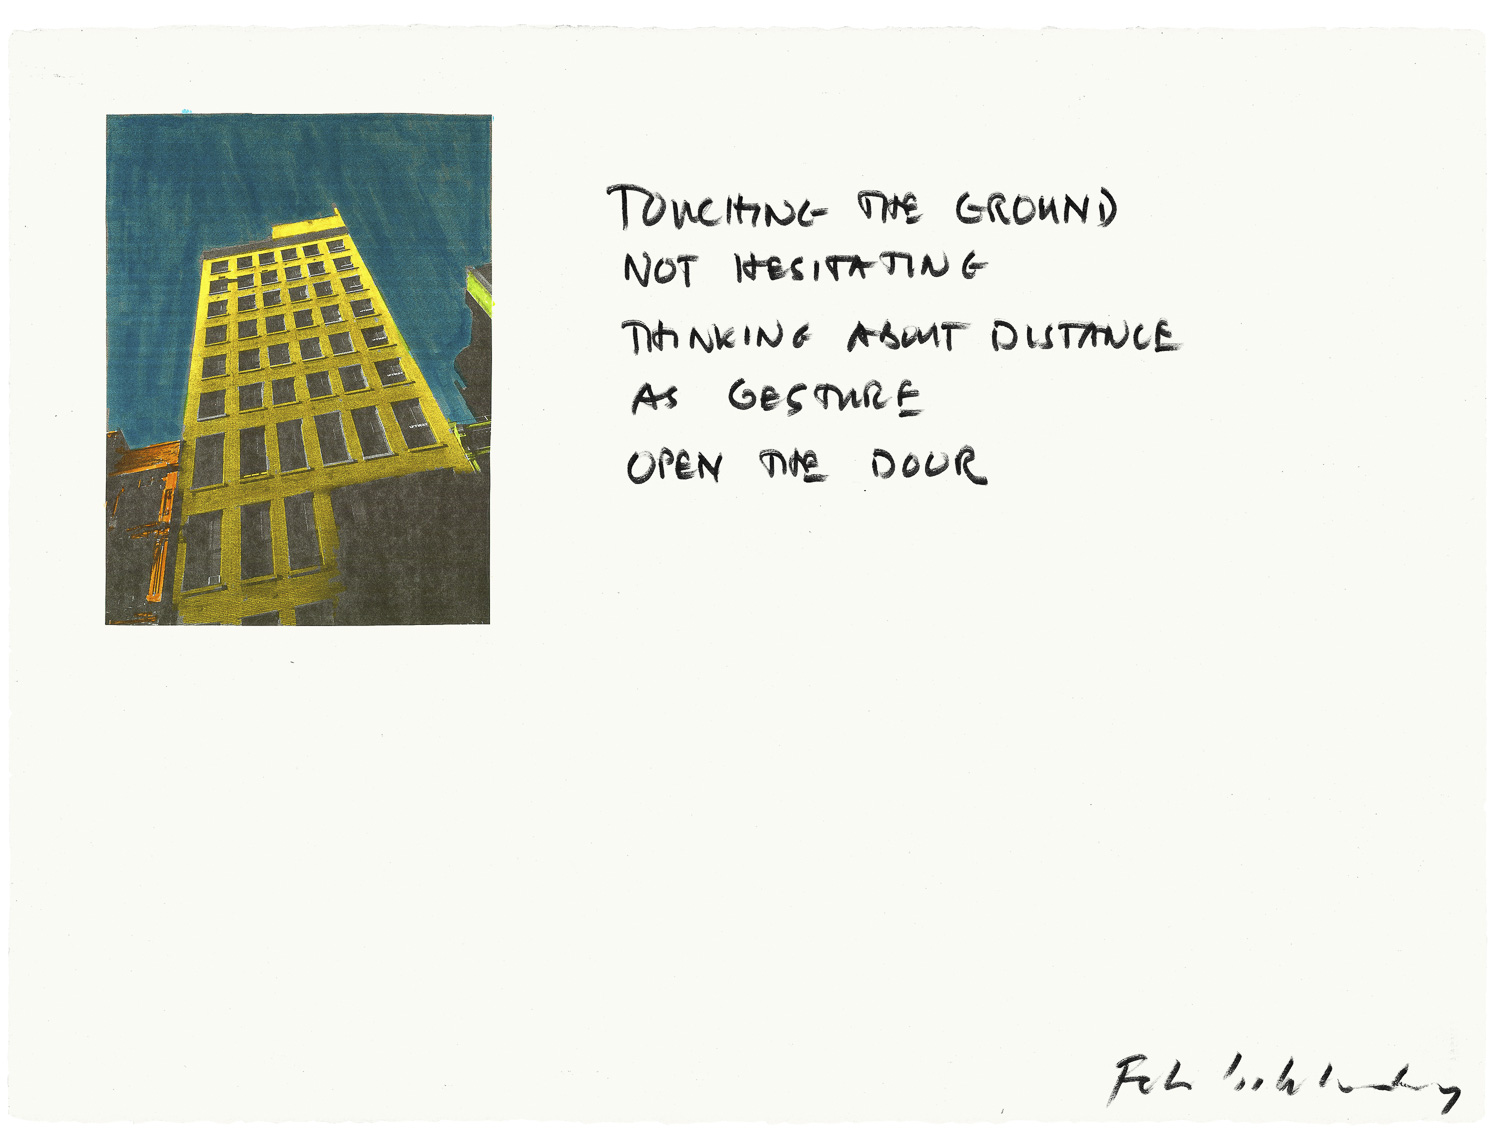 TOUCHING THE GROUND
NOT HESITATING
THINKING ABOUT DISTANCE
AS GESTURE
OPEN THE DOOR